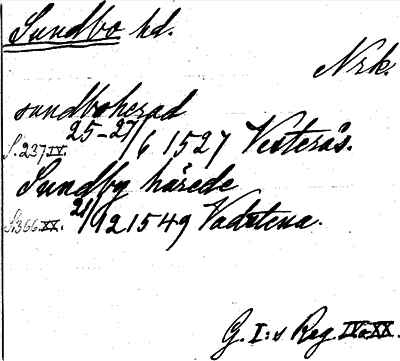 Sundbo hd.
Nrk.
sundboherad
S. 237 IV. 25-27/6 1527 Vesterås.
Sundby härede
S. 366. XX. 21/12 1549 Vadstena.
G. I:s Reg. IV o. XX.